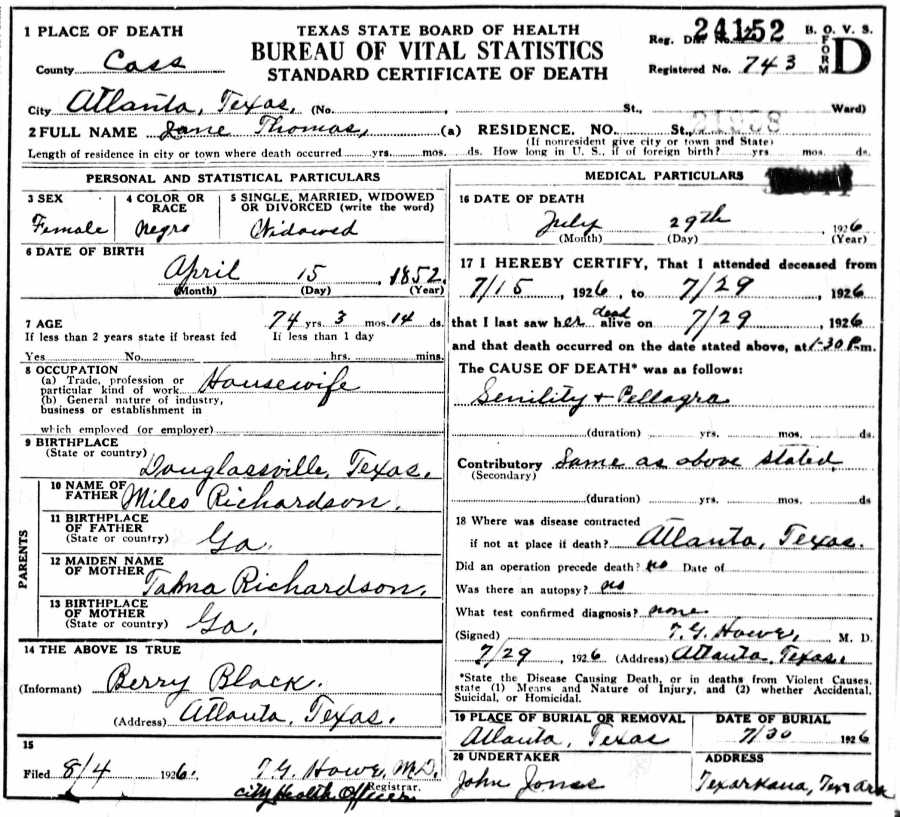 1 PLACE OF DEATH
County Cass
TEXAS STATE BOARD OF HEALTH
BUREAU OF VITAL STATISTICS
STANDARD CERTIFICATE OF DEATH
Reg. Dist. No. 24152
B. O. V. S.
FORM D
Registered No. 743
City Atlanta, Texas, (No. , St., Ward)
2 FULL NAME Jane Thomas, (a) RESIDENCE, NO. St.,
(If nonresident give city or town and State)
Length of residence in city or town where death occurred yrs. mos. ds. How long in U. S., if of foreign birth? yrs. mos. ds.
PERSONAL AND STATISTICAL PARTICULARS
3 SEX
Female
4 COLOR OR RACE
Negro
5 SINGLE, MARRIED, WIDOWED OR DIVORCED (write the word)
Widowed
6 DATE OF BIRTH
April 15, 1852
(Month) (Day) (Year)
7 AGE 74 yrs. 3 mos. 14 ds.
If less than 2 years state if breast fed If less than 1 day
Yes No. hrs. mins.
8 OCCUPATION
(a) Trade, profession or
particular kind of work Housewife
(b) General nature of industry,
business or establishment in
which employed (or employer)
9 BIRTHPLACE
(State or country)
Douglassville, Texas.
PARENTS
10 NAME OF
FATHER Miles Richardson.
11 BIRTHPLACE
OF FATHER
(State or country) Ga.
12 MAIDEN NAME
OF MOTHER
Richardson.
13 BIRTHPLACE
OF MOTHER
(State or country) Ga.
14 THE ABOVE IS TRUE
(Informant) Berry Black.
(Address) Atlanta, Texas.
15
Filed 8/4 1926. T. G. Howe, M.D.
Registrar.
City Health Officer
MEDICAL PARTICULARS
16 DATE OF DEATH
July 29th 1926
(Month) (Day) (Year)
17 I HEREBY CERTIFY, That I attended deceased from
7/15, 1926, to 7/29 1926
that I last saw her dead alive on 7/29, 1926
and that death occurred on the date stated above, at 1-30 P.m.
The CAUSE OF DEATH* was as follows:
Senility + Pellagra
(duration) yrs. mos. ds.
Contributory Same as above stated
(Secondary)
(duration) yrs. mos. ds
18 Where was disease contracted
if not at place if death? Atlanta, Texas.
Did an operation precede death? no Date of
Was there an autopsy? no
What test confirmed diagnosis? none
(Signed) T. G. Howe, M. D.
7/29, 1926 (Address) Atlanta, Texas.
*State the Disease Causing Death, or in deaths from Violent Causes,
state (1) Means and Nature of Injury, and (2) whether Accidental,
Suicidal, or Homicidal.
19 PLACE OF BURIAL OR REMOVAL
Atlanta, Texas
DATE OF BURIAL
7/30 1926
20 UNDERTAKER
John Jones
ADDRESS
Texarkana, Tex Ark